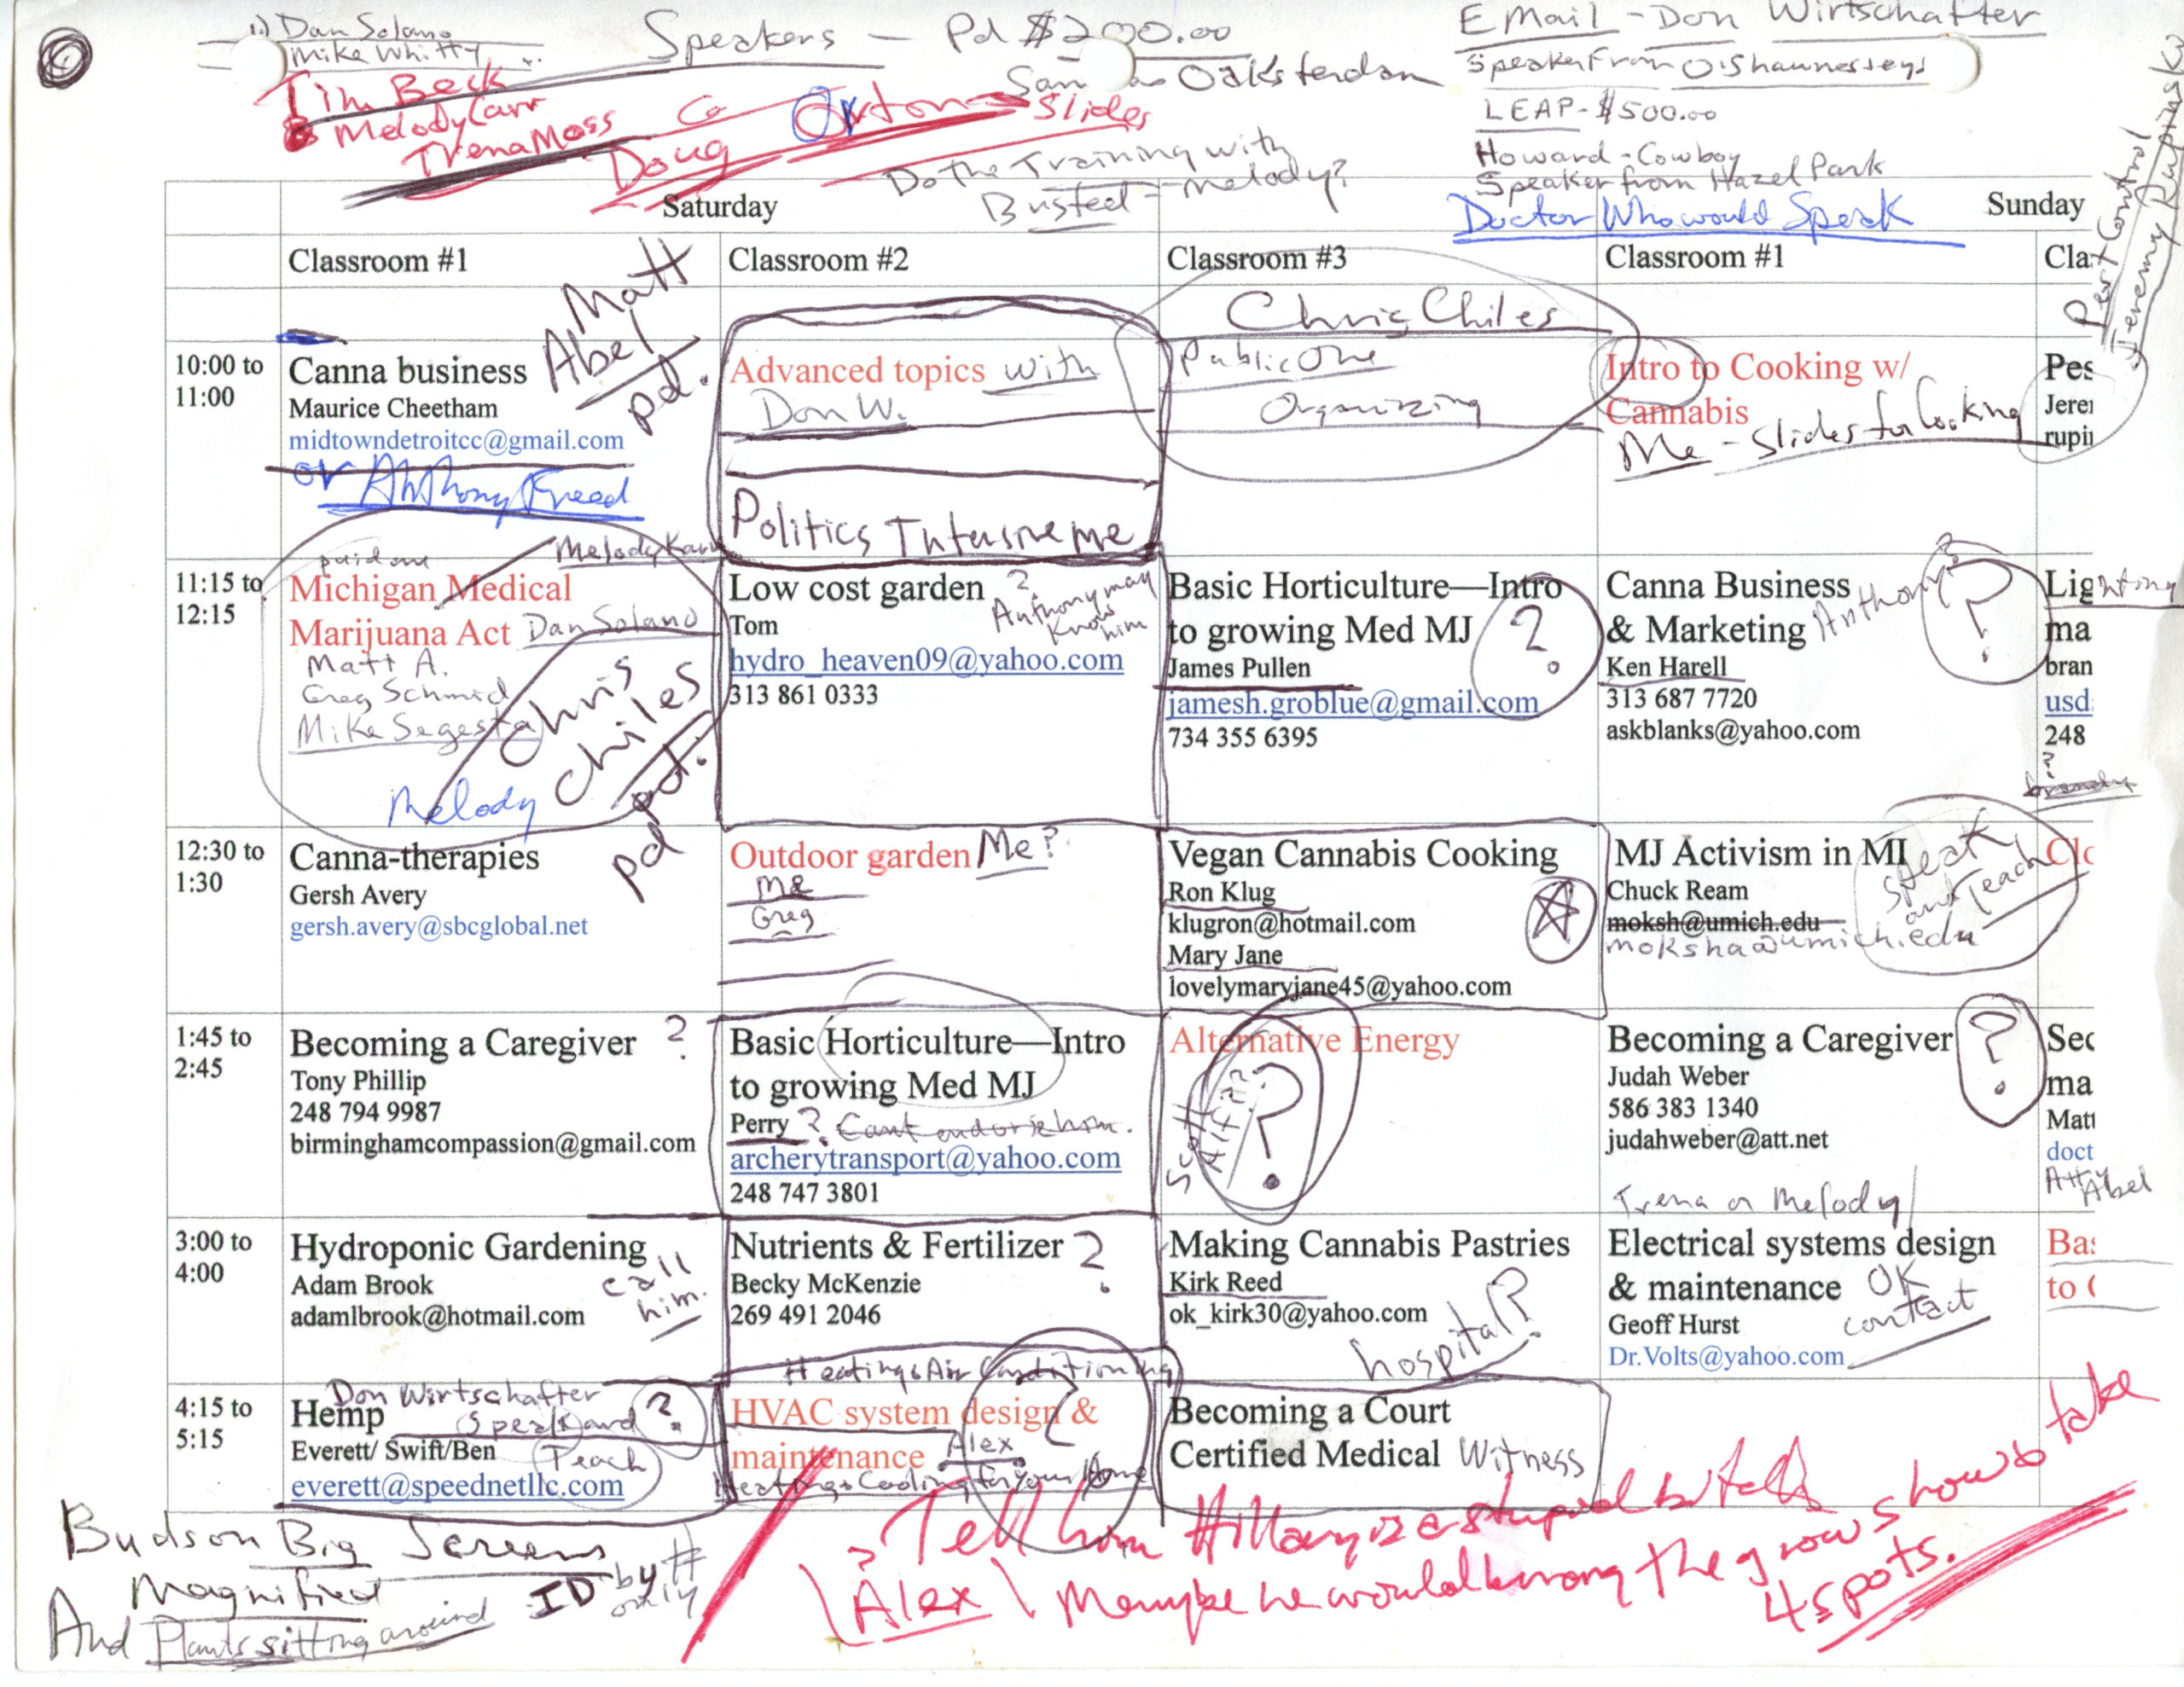 1.) Dan Solano
Mike Whitty
Speakers — Pd $200.00
EMail - Don Wirtschafter
Speaker From O'Shaunesseys
Oaksterdam
Tim Beck
Melody Carr
Trena Moss
Doug Orton Slides
LEAP - $500.00
Howard - Cowboy
Speaker from Hazel Park
Doctor Who would Speak
Do the Training with
Busted - Melody?
Pest Control
Jeremy Rupinski
Saturday
Sunday
Classroom #1
Classroom #2
Classroom #3
Classroom #1
Cla
Matt
Abel
pd.
Chris Chiles
10:00 to
11:00
Canna business
Maurice Cheetham
midtowndetroitcc@gmail.com
or Anthony Freed
Advanced topics with
Don W.
Politics Intensive me
Public One
Organizing
Intro to Cooking w/
Cannabis
Me - Slides for Cooking
Pes
Jerei
rupii
11:15 to
12:15
paid one
Melody Karr
Michigan Medical
Marijuana Act Dan Solano
Matt A.
Greg Schmid
Mike Segesta
Chris
Chiles
pd.
Melody
pd
Low cost garden ?
Anthony may
Know
him
Tom
hydro_heaven09@yahoo.com
313 861 0333
Basic Horticulture—Intro
to growing Med MJ ?
James Pullen
jamesh.groblue@gmail.com
734 355 6395
Canna Business
& Marketing Anthony? ?
Ken Harell
313 687 7720
askblanks@yahoo.com
Lighting
ma
bran
usd
248
?
12:30 to
1:30
Canna-therapies
Gersh Avery
gersh.avery@sbcglobal.net
Outdoor garden Me?
Me
Greg
Vegan Cannabis Cooking
Ron Klug
klugron@hotmail.com
Mary Jane
lovelymaryjane45@yahoo.com
MJ Activism in MI
Speak
and Teach
Chuck Ream
moksh@umich.edu
moksha@umich.edu
Clc
1:45 to
2:45
Becoming a Caregiver ?
Tony Phillip
248 794 9987
birminghamcompassion@gmail.com
Basic Horticulture—Intro
to growing Med MJ
Perry ? Cant endorse him.
archerytransport@yahoo.com
248 747 3801
Alternative Energy
Scott
?
Becoming a Caregiver ?
Judah Weber
586 383 1340
judahweber@att.net
Trena or Melody
Sec
ma
Matt
doct
Atty Abel
3:00 to
4:00
Hydroponic Gardening
Adam Brook
adamlbrook@hotmail.com
call
him.
Nutrients & Fertilizer ?
Becky McKenzie
269 491 2046
Making Cannabis Pastries
Kirk Reed
ok_kirk30@yahoo.com
hospital?
Electrical systems design
& maintenance OK
contact
Geoff Hurst
Dr.Volts@yahoo.com
Bas
to (
4:15 to
5:15
Don Wirtschafter
Hemp Speak and ?
Teach
Everett/ Swift/Ben
everett@speednetllc.com
Heating & Air Conditioning
HVAC system design &
maintenance Alex
Heating & Cooling for Your Home
Becoming a Court
Certified Medical Witness
Buds on Big Screens
Magnified
And Plants sitting around
ID by #
only
? Tell him Hillary is a stupid
Alex Maybe he would bring the grow show to take
4 spots.